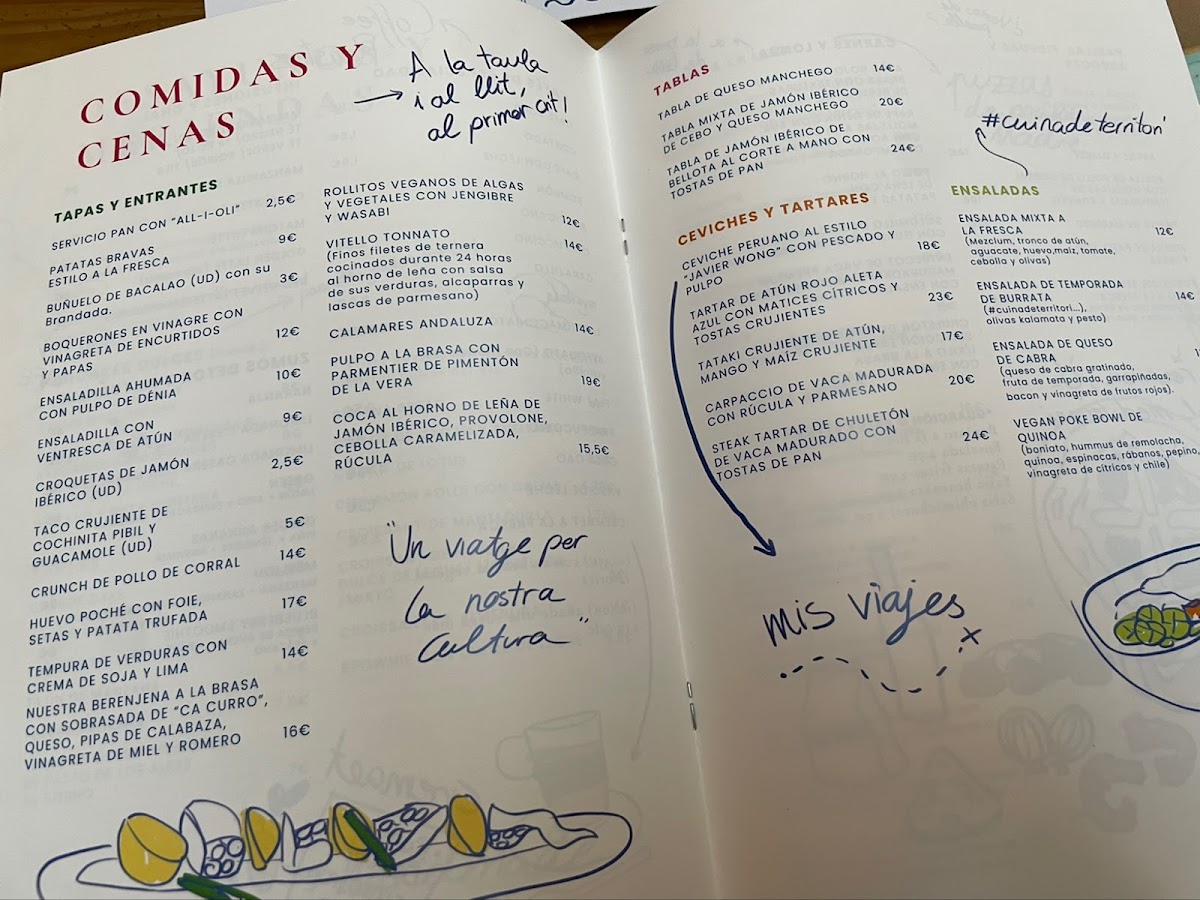 COMIDAS Y
CENAS
A la taula
i al llit,
al primer crit!
TAPAS Y ENTRANTES
SERVICIO PAN CON “ALL-I-OLI” 2,5€
PATATAS BRAVAS 9€
ESTILO A LA FRESCA
BUÑUELO DE BACALAO (UD) con su 3€
Brandada.
BOQUERONES EN VINAGRE CON
VINAGRETA DE ENCURTIDOS 12€
Y PAPAS
ENSALADILLA AHUMADA 10€
CON PULPO DE DÉNIA
ENSALADILLA CON 9€
VENTRESCA DE ATÚN
CROQUETAS DE JAMÓN 2,5€
IBÉRICO (UD)
TACO CRUJIENTE DE
COCHINITA PIBIL Y 5€
GUACAMOLE (UD)
CRUNCH DE POLLO DE CORRAL 14€
HUEVO POCHÉ CON FOIE, 17€
SETAS Y PATATA TRUFADA
TEMPURA DE VERDURAS CON 14€
CREMA DE SOJA Y LIMA
NUESTRA BERENJENA A LA BRASA
CON SOBRASADA DE “CA CURRO”,
QUESO, PIPAS DE CALABAZA, 16€
VINAGRETA DE MIEL Y ROMERO
ROLLITOS VEGANOS DE ALGAS
Y VEGETALES CON JENGIBRE
Y WASABI 12€
VITELLO TONNATO 14€
(Finos filetes de ternera
cocinados durante 24 horas
al horno de leña con salsa
de sus verduras, alcaparras y
lascas de parmesano)
CALAMARES ANDALUZA 14€
PULPO A LA BRASA CON
PARMENTIER DE PIMENTÓN
DE LA VERA 19€
COCA AL HORNO DE LEÑA DE
JAMÓN IBÉRICO, PROVOLONE,
CEBOLLA CARAMELIZADA, 15,5€
RÚCULA
"Un viatge per
la nostra
cultura"
TABLAS
TABLA DE QUESO MANCHEGO 14€
TABLA MIXTA DE JAMÓN IBÉRICO 20€
DE CEBO Y QUESO MANCHEGO
TABLA DE JAMÓN IBÉRICO DE
BELLOTA AL CORTE A MANO CON 24€
TOSTAS DE PAN
CEVICHES Y TARTARES
CEVICHE PERUANO AL ESTILO
“JAVIER WONG” CON PESCADO Y 18€
PULPO
TARTAR DE ATÚN ROJO ALETA
AZUL CON MATICES CÍTRICOS Y 23€
TOSTAS CRUJIENTES
TATAKI CRUJIENTE DE ATÚN, 17€
MANGO Y MAÍZ CRUJIENTE
CARPACCIO DE VACA MADURADA 20€
CON RÚCULA Y PARMESANO
STEAK TARTAR DE CHULETÓN
DE VACA MADURADO CON 24€
TOSTAS DE PAN
mis viajes
#cuinadeterritori
ENSALADAS
ENSALADA MIXTA A 12€
LA FRESCA
(Mezclum, tronco de atún,
aguacate, huevo,maíz, tomate,
cebolla y olivas)
ENSALADA DE TEMPORADA 14€
DE BURRATA
(#cuinadeterritori...),
olivas kalamata y pesto)
ENSALADA DE QUESO
DE CABRA
(queso de cabra gratinado,
fruta de temporada, garrapiñadas,
bacon y vinagreta de frutos rojos).
VEGAN POKE BOWL DE
QUINOA
(boniato, hummus de remolacha,
quinoa, espinacas, rábanos, pepino,
vinagreta de cítricos y chile)